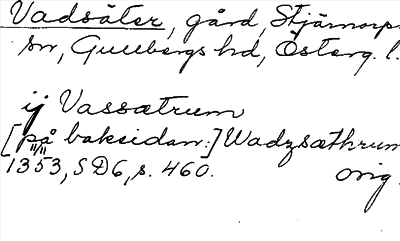 Vadsäter, gård, Stjärnorps
sn, Gullbergs hd, Österg. l.
ij Vassætrum
[på baksidan:] Wadzsæthrum
11/11
1353, SD6, s. 460. orig.